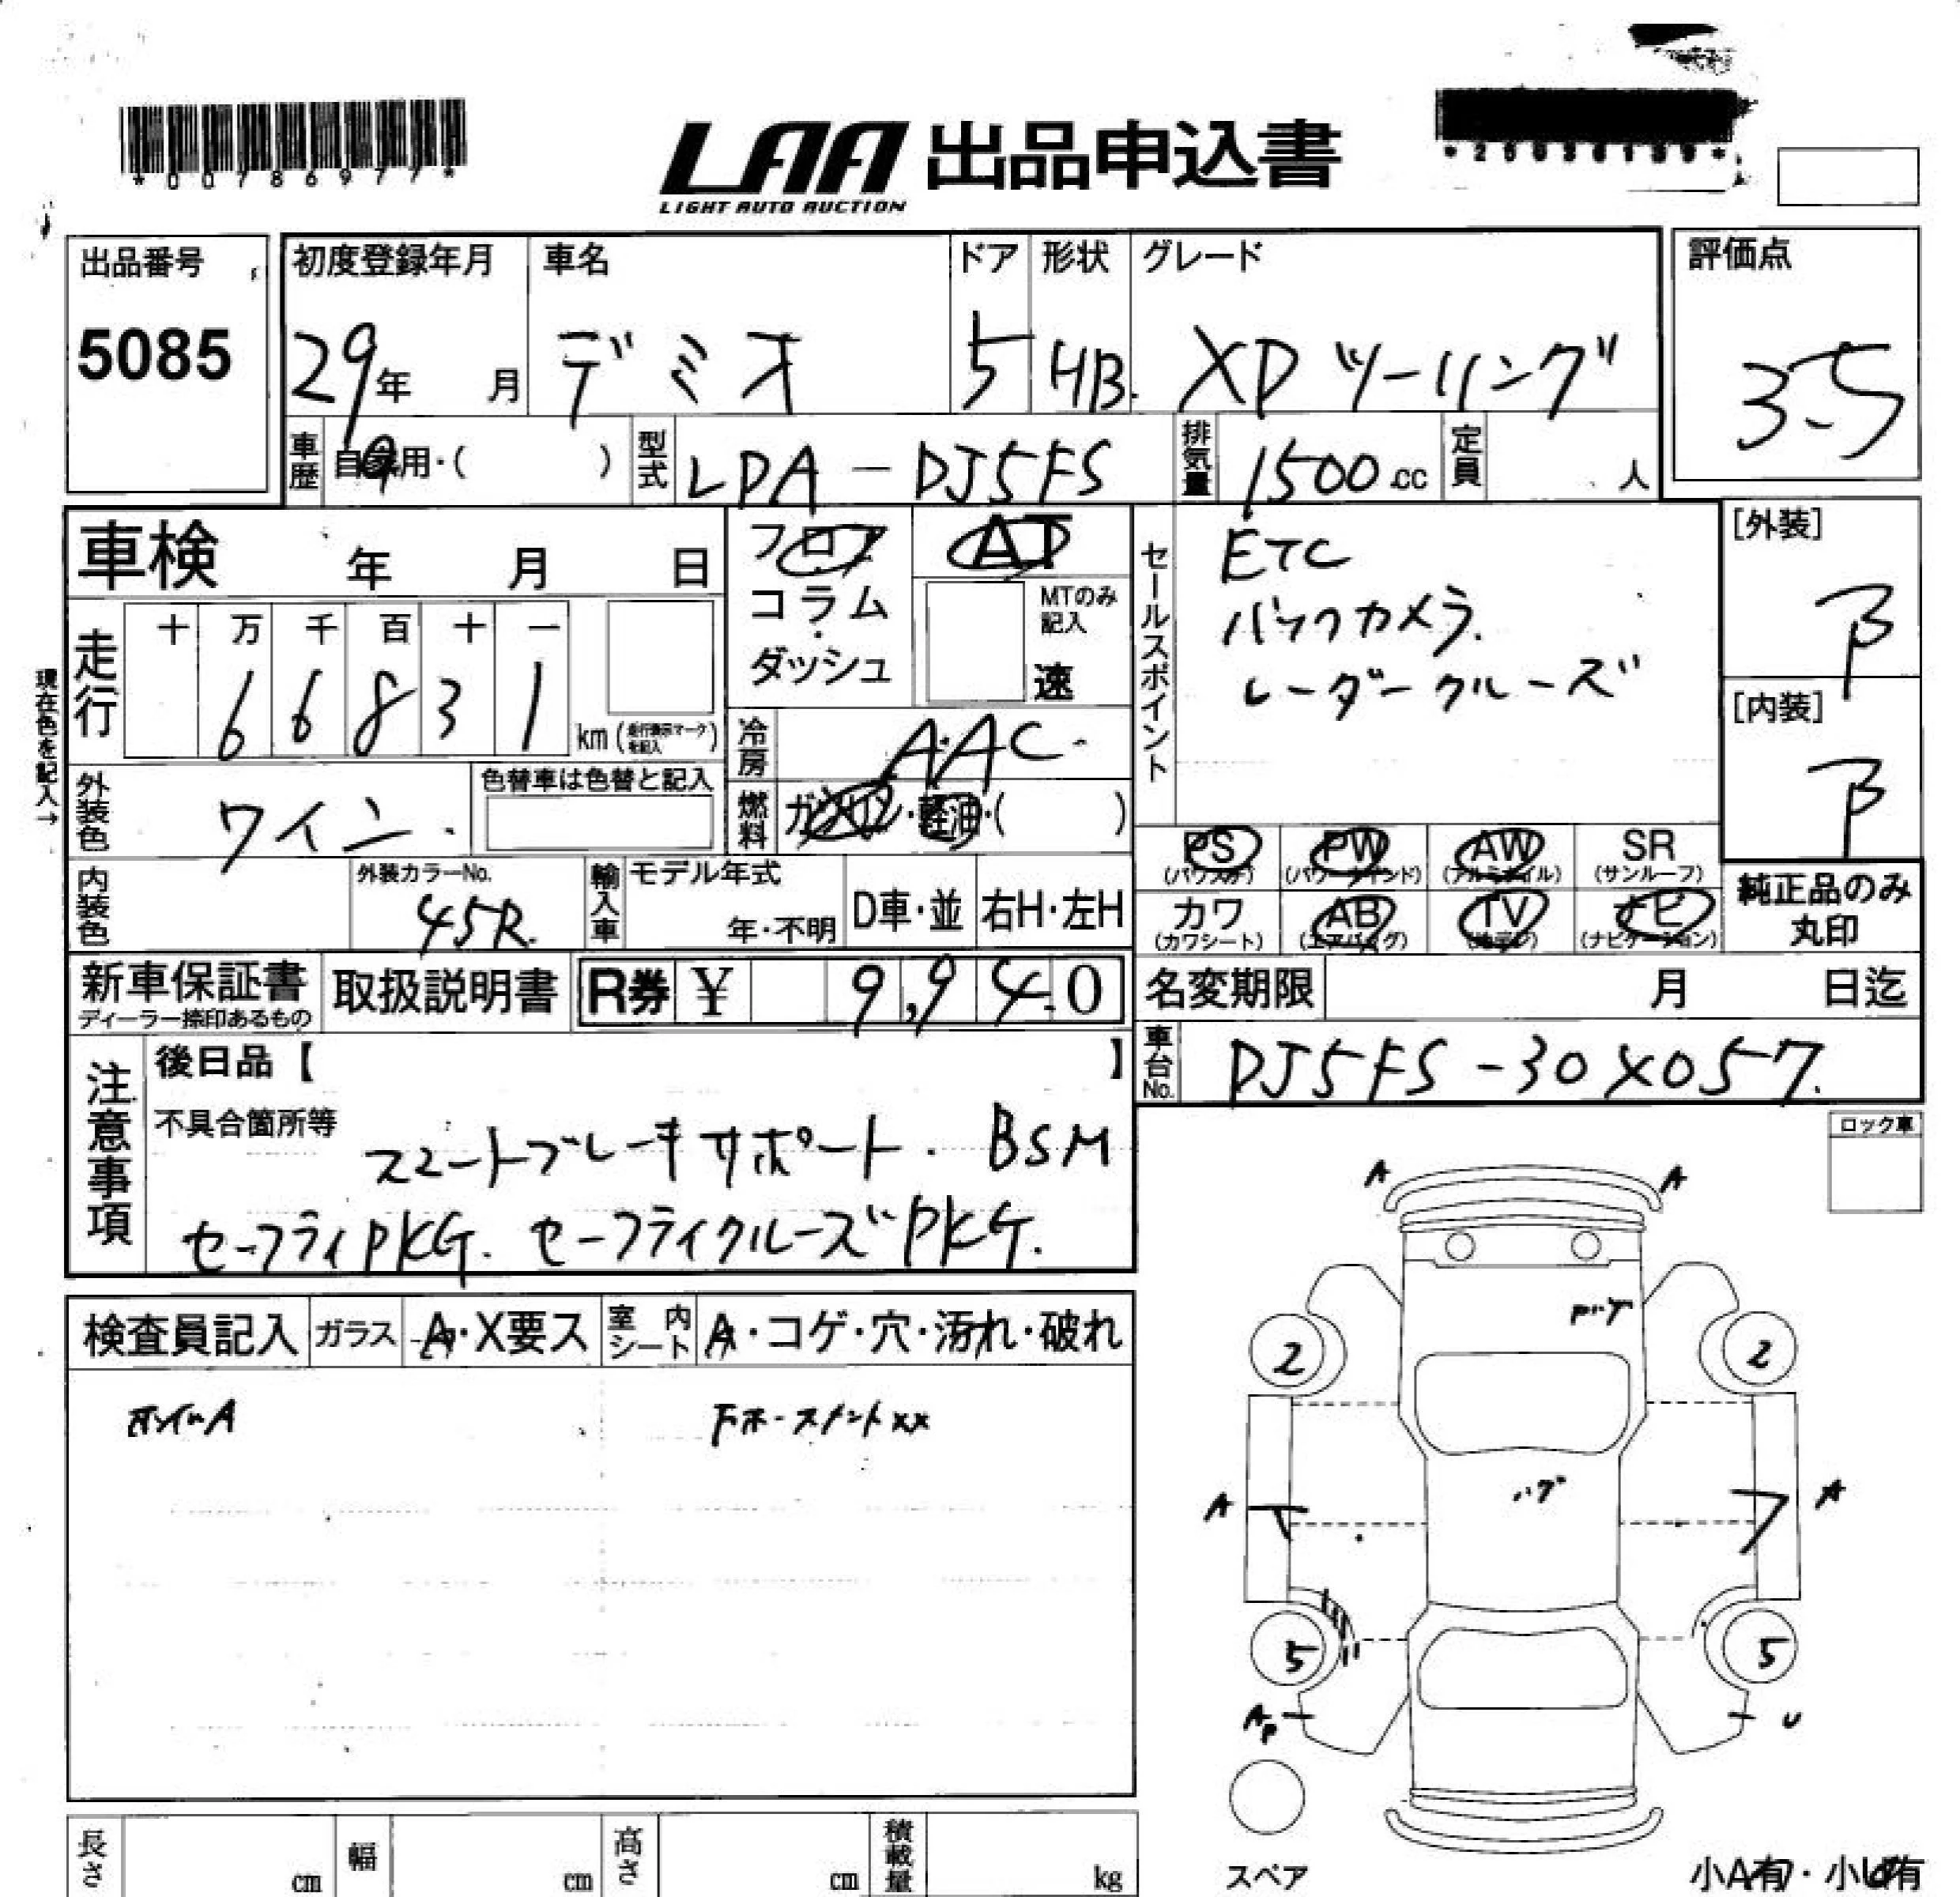 *00786977*
LAA 出品申込書
LIGHT AUTO AUCTION
出品番号
5085
初度登録年月 車名 ドア 形状 グレード
29年 月 デミオ 5 HB. XDツーリング
評価点
3.5
車歴 自家用・( ) 型式 LDA-DJ5FS 排気量 1500.cc 定員 人
車検 年 月 日
フロア
コラム
・
ダッシュ
AT
MTのみ
記入
速
セールスポイント
ETC
バックカメラ.
レーダークルーズ
[外装]
β
[内装]
β
現在色を記入→
走行 十 万 千 百 十 一
6 6 8 3 1 km
冷房 AAC
燃料 ガソリン・軽油・( )
外装色 ワイン. 色替車は色替と記入
内装色 外装カラーNo. 45R.
輸入車 モデル年式 年・不明 D車・並 右H・左H
PS PW AW SR
(パワステ) (パワーウインド) (アルミホイル) (サンルーフ)
カワ AB TV ナビ
(カワシート) (エアバッグ) (地デジ) (ナビゲーション)
純正品のみ
丸印
新車保証書
ディーラー捺印あるもの
取扱説明書 R券 ¥ 9,940
名変期限 月 日迄
車台No. DJ5FS-30X057.
注意事項
後日品【 】
不具合箇所等
スマートブレーキサポート. BSM
セーフティPKG. セーフティクルーズPKG.
ロック車
検査員記入 ガラス A・X要ス 室内シート A・コゲ・穴・汚れ・破れ
A A
2 2
ハゲ
A A
5 5
AP U
スペア
小A有・小U有
長さ cm 幅 cm 高さ cm 積載量 kg